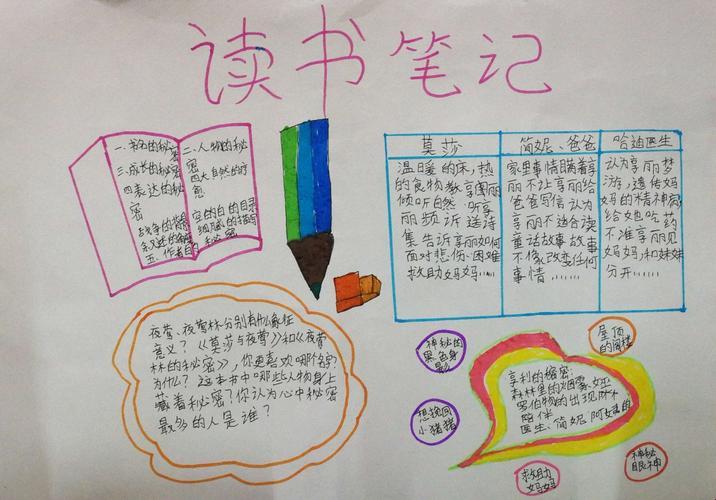 读书笔记
一.书名的秘密
三.成长的秘密
四表达的秘密
战争的背景
二.人物的秘密
四大自然的疗愈
莫莎
温暖的床,热
的食物教享丽
倾听自然.听享
丽倾诉送诗
集告诉享丽如何
面对悲伤.困难
救助妈妈……
简妮、爸爸
家里事情瞒着享
丽不让享丽给
爸爸写信认为
享丽不适合读
童话故事故事
不像改变任何
事情,……
哈迪医生
认为享丽梦
游,遗传妈
妈的精神病
给她吃药
不准享丽见
妈妈,和妹妹
分开……
夜莺、夜莺林分别有什么象征
意义?《莫莎与夜莺》和《夜莺
林的秘密》,你更喜欢哪个名字?
为什么?这本书中哪些人物身上
藏着秘密?你认为心中秘密
最多的人是谁?
神秘的
黑色身
影
屋顶
的阁楼
想换回
小猪猪
亨利的秘密:
森林里的烟雾、
的出现
陪伴
医生、简妮
救助
妈妈
神秘
眼神